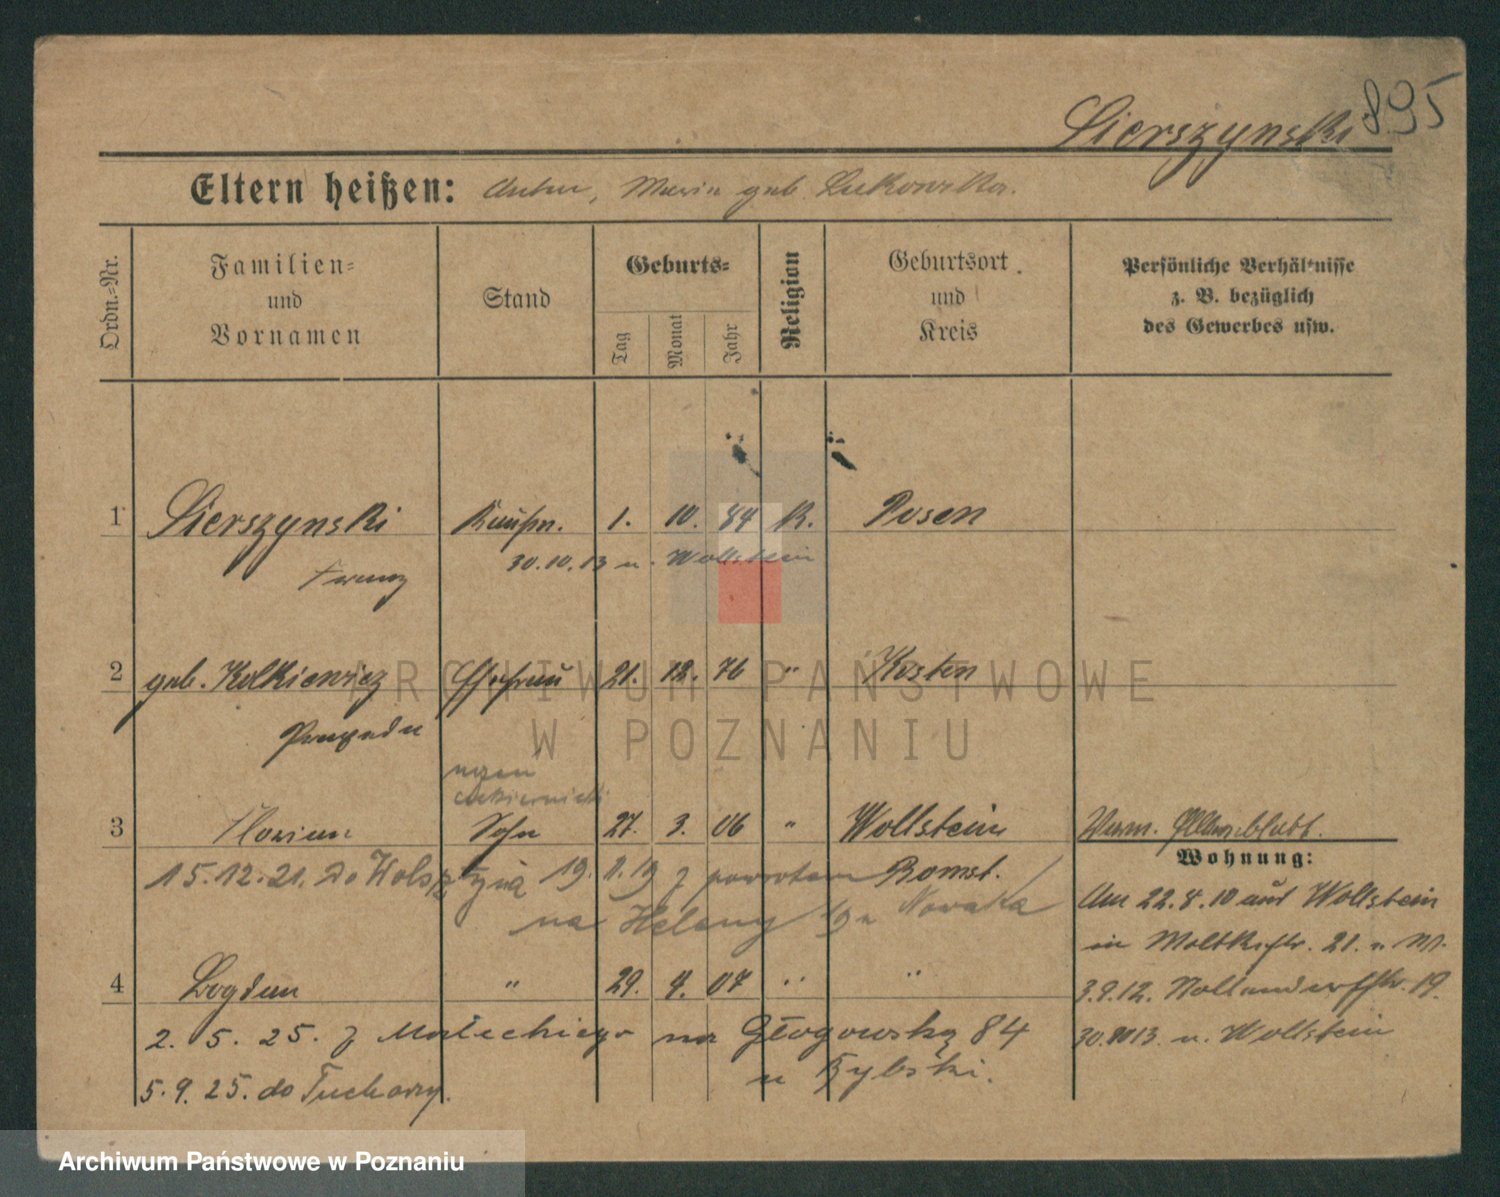 895
Sierszynski
Eltern heißen: Anton, Maria geb. Lukowska.
Ordn.-Nr.
Familien-
und
Vornamen
Stand
Geburts-
Tag
Monat
Jahr
Religion
Geburtsort
und
Kreis
Persönliche Verhältnisse
z. B. bezüglich
des Gewerbes usw.
1 Sierszynski Kaufm. 1. 10. 84 K. Posen
30.10.13 n. Wollstein
Franz
2 geb. Kolkiewicz Ehefrau 21. 12. 76 " Kosten
Praxeda
uczeń
cukiernicki
3 Florian Sohn 27. 3. 06 " Wollstein
Wohnung:
15.12.21. do Wolsztyna 19. 11. 19 z powrotem Bomst.
na Heleny 19 u Nowaka
Am 22.4.10 aus Wollstein
in Moltkestr. 21.
4 Bogdan " 29. 4. 07 " "
3.9.12. Hollanderstr. 19.
2. 5. 25. z Małeckiego na Głogowską 84
u Rybski.
13. n. Wollstein
5. 9. 25. do Tuchorzy.
ARCHIWUM PAŃSTWOWE
W POZNANIU
Archiwum Państwowe w Poznaniu